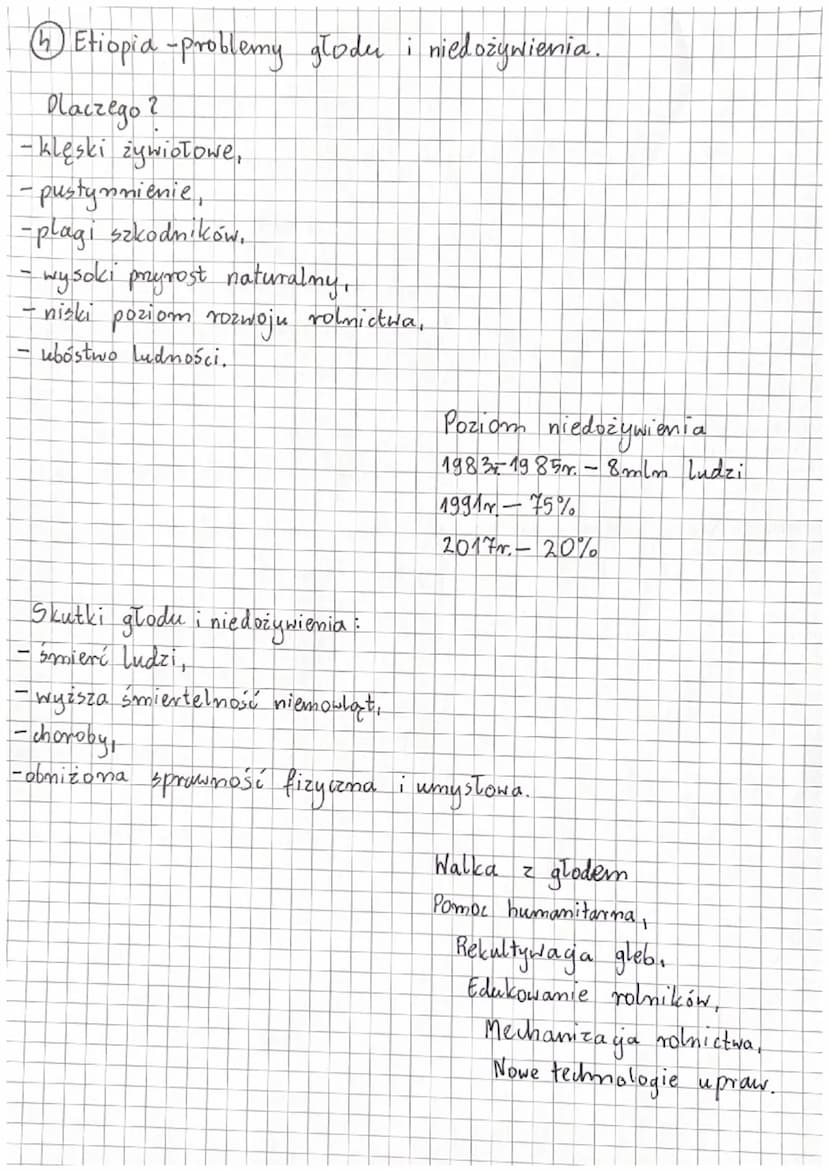 (h) Etiopia - problemy głodu i niedożywienia.
Dlaczego?
- klęski żywiołowe,
- pustynnienie,
- plagi szkodników,
- wysoki przyrost naturalny,
- niski poziom rozwoju rolnictwa,
- ubóstwo ludności.
Poziom niedożywienia
1983r-1985r. - 8mln ludzi
1991r. - 75%
2017r. - 20%
Skutki głodu i niedożywienia:
- śmierć ludzi,
- wyższa śmiertelność niemowląt,
- choroby,
- obniżona sprawność fizyczna i umysłowa.
Walka z głodem
Pomoc humanitarna,
Rekultywacja gleb,
Edukowanie rolników,
Mechanizacja rolnictwa,
Nowe technologie upraw.